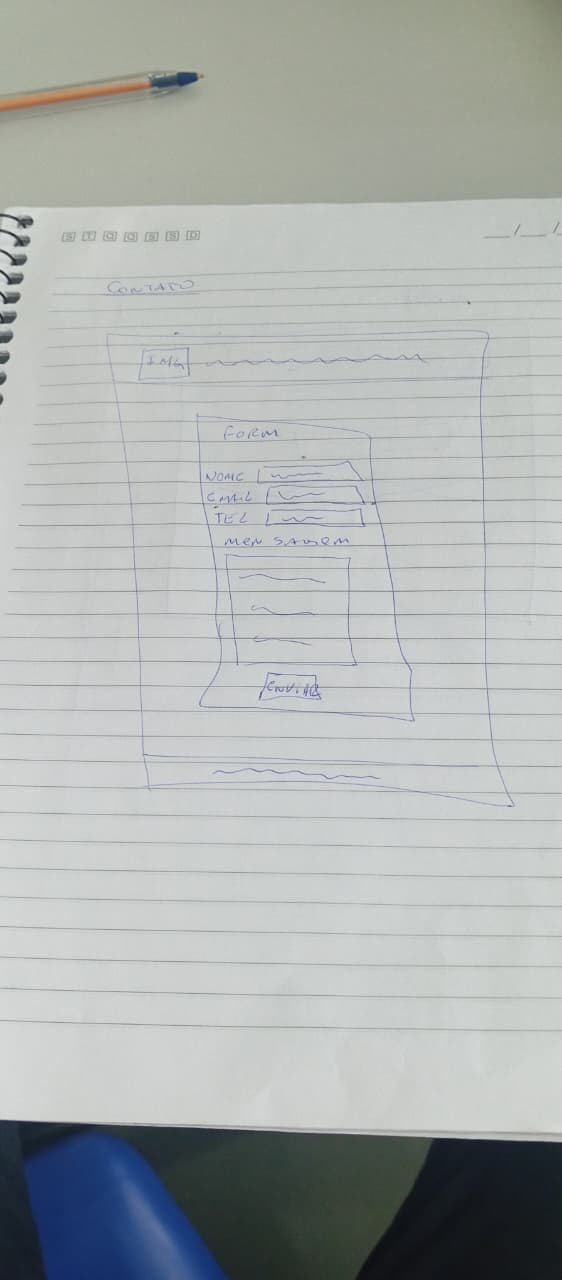 S T Q Q S S D
__/__/
CONTATO
IMG
FORM
NOME
EMAIL
TEL
MENSAGEM
ENVIAR